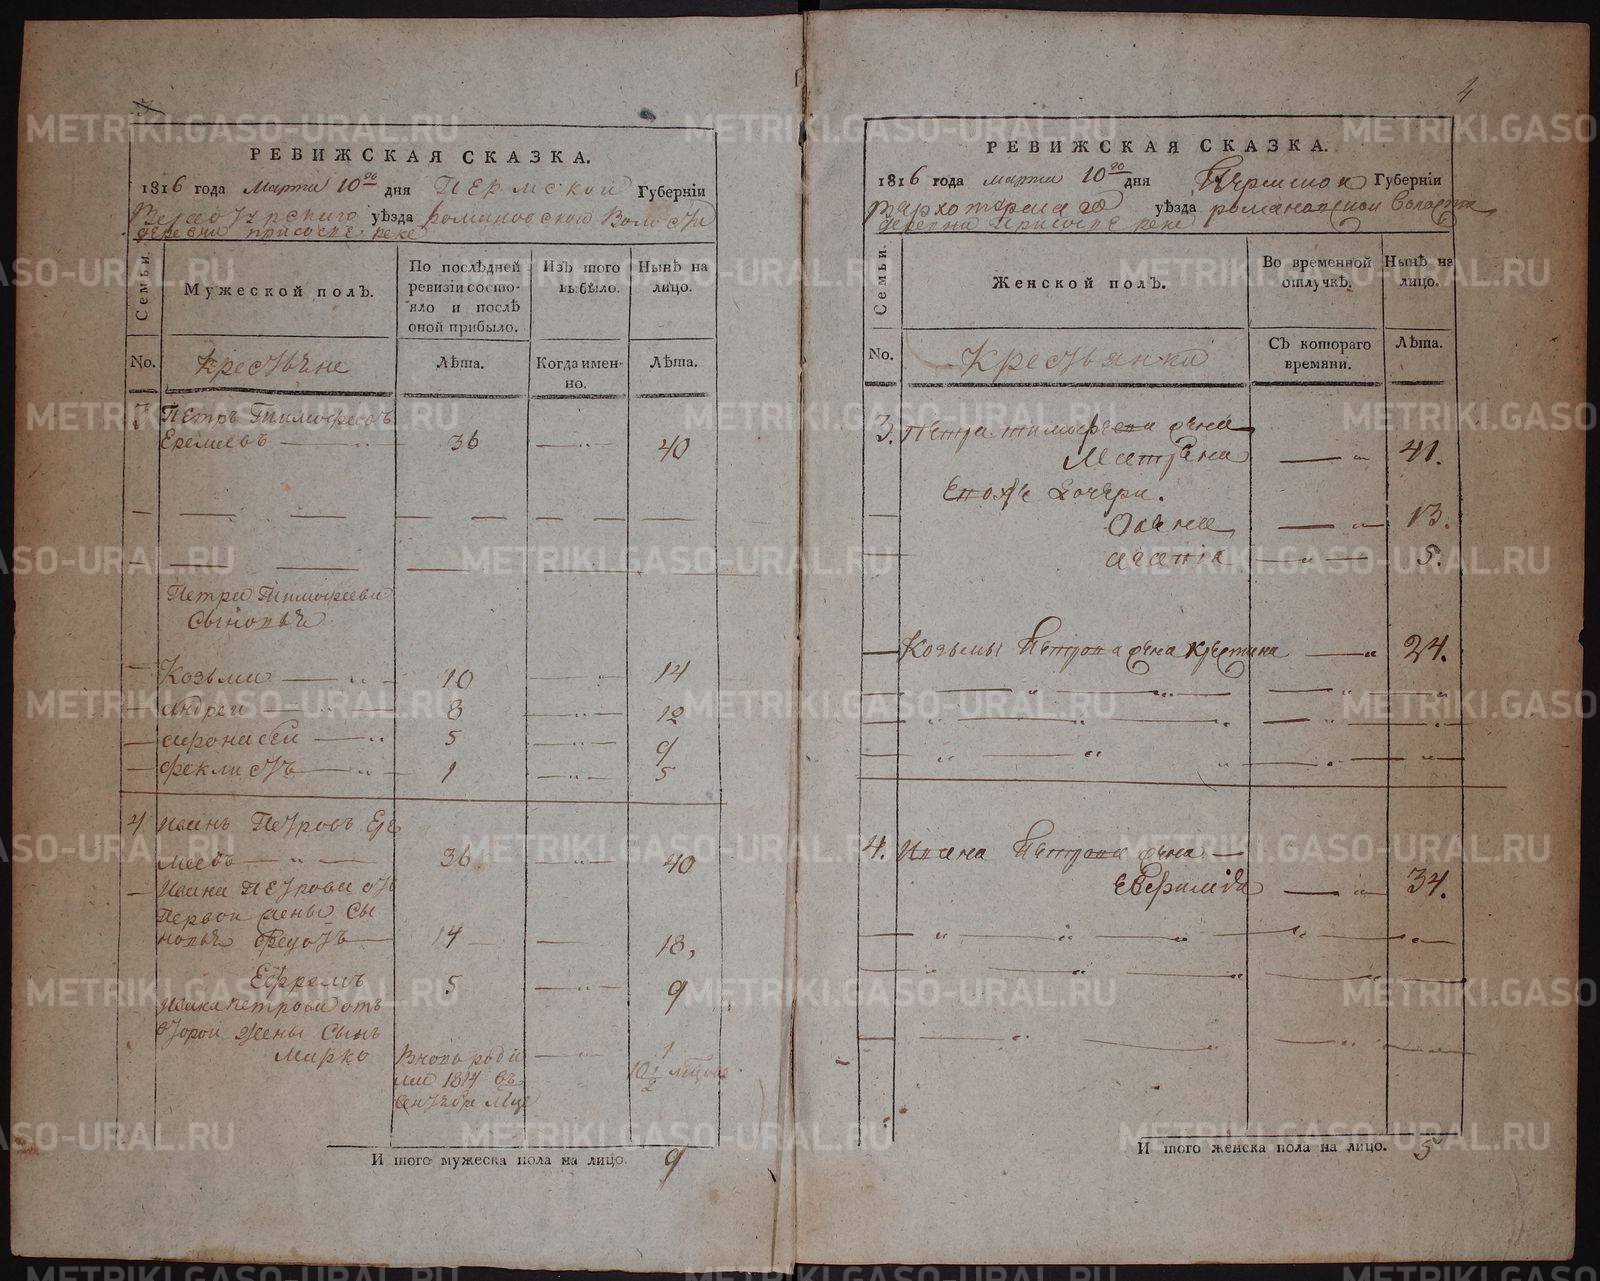 4
РЕВИЖСКАЯ СКАЗКА.
1816 года марта 10го дня Пермской Губерніи
Верхотурскаго уѣзда романовской Волости
деревни присосве реке
Семьи.
Мужеской полъ.
По послѣдней ревизіи состояло и послѣ оной прибыло.
Изъ того выбыло.
Нынѣ на лицо.
No.
крестьяне
Лѣта.
Когда именно.
Лѣта.
3 Петръ Тимофеевъ
Еремеевъ 36 40
Петра Тимофеева
Сыновьѣ
Козьма 10 14
андреи 8 12
афонасеи 5 9
феклистъ 1 5
4 Иванъ Петровъ Ере
меевъ 36 40
Ивана Петрова от
Первои жены Сы
новьѣ федотъ 14 18,
Ефремъ 5 9
Ивана петрова отъ
второи жены Сынъ
Марко Вновь роди 1
ли 1814 въ 10 1/2 месецов
сентебре мце
И того мужеска пола на лицо. 9
4
РЕВИЖСКАЯ СКАЗКА.
1816 года марта 10го дня Пермской Губерніи
Верхотурскаго уѣзда романовской волости
деревни присосве реке
Семьи.
Женской полъ.
Во временной отлучкѣ.
Нынѣ на лицо.
No.
Крестьянки
Съ котораго времяни.
Лѣта.
3. Петра тимофеева жена
Матрена 41.
Евожѣ дочери.
Олена 13.
5.
Козьмы Петрова жена крестина 24.
4. Ивана Петрова жена
Евфимія 34.
И того женска пола на лицо. 5
METRIKI.GASO-URAL.RU